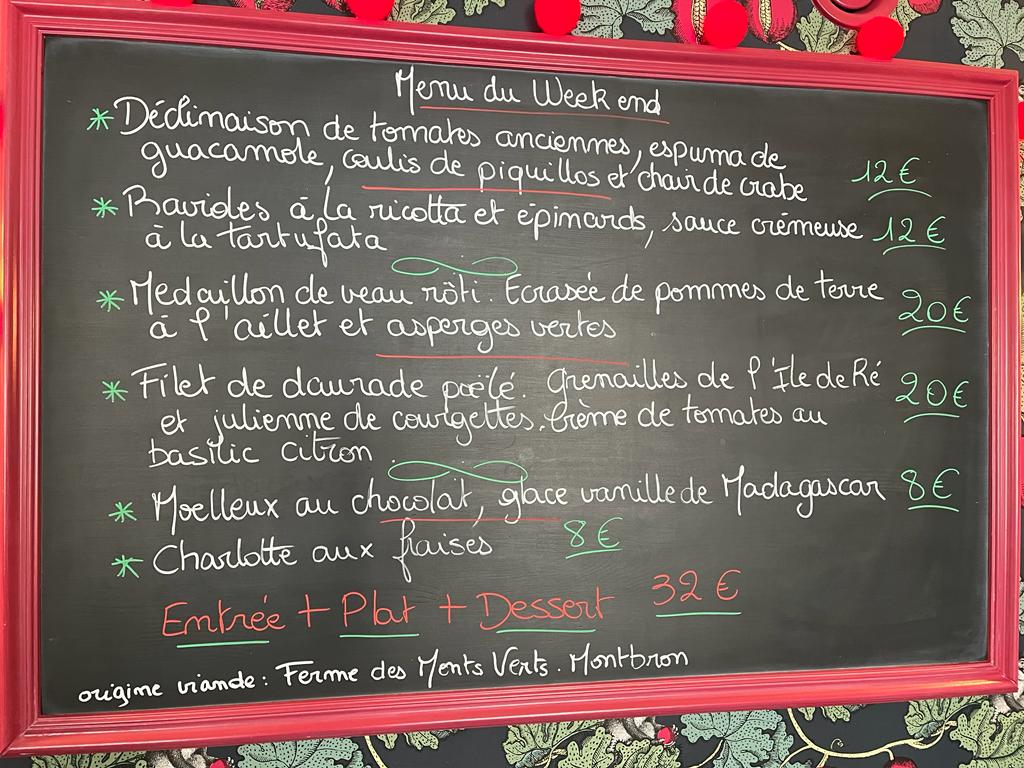 Menu du Week end
* Déclinaison de tomates anciennes, espuma de
guacamole, coulis de piquillos et chair de crabe 12 €
* Ravioles à la ricotta et épinards, sauce crémeuse 12 €
à la tartufata
* Médaillon de veau rôti. Ecrasée de pommes de terre
à l'aillet et asperges vertes 20€
* Filet de daurade poëlé. Grenailles de l'Ile de Ré 20€
et julienne de courgettes. Crème de tomates au
basilic citron.
* Moelleux au chocolat, glace vanille de Madagascar 8€
* Charlotte aux fraises 8€
Entrée + Plat + Dessert 32 €
origine viande : Ferme des Monts Verts. Montbron